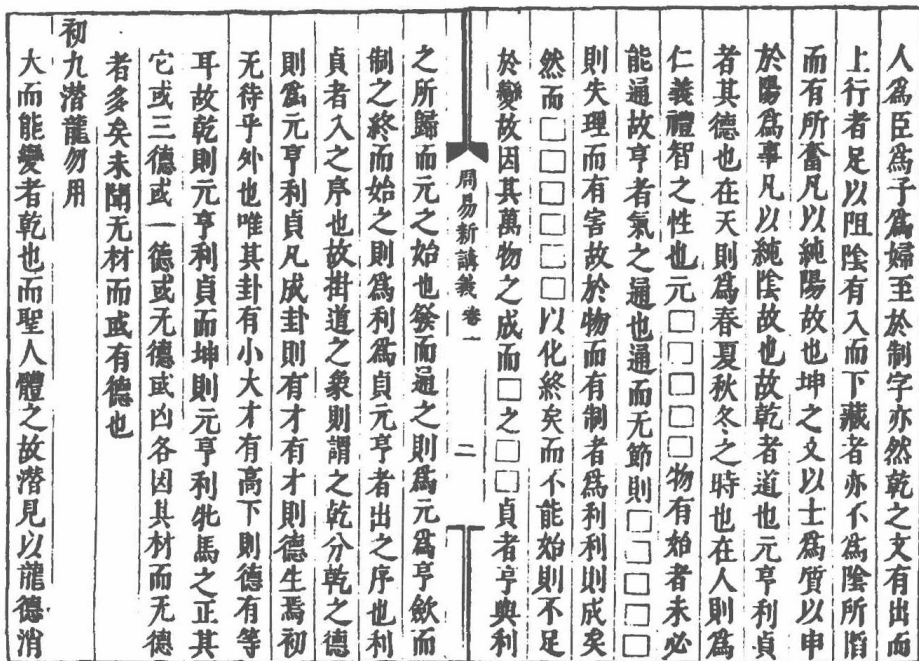 人為臣為子為婦至於制字亦然乾之文有出而
上行者足以阻陰有入而下藏者亦不為陰所陷
而有所奮凡以純陽故也坤之文以土為質以申
於陽為事凡以純陰故也故乾者道也元亨利貞
者其德也在天則為春夏秋冬之時也在人則為
仁義禮智之性也元□□□□□物有始者未必
能通故亨者氣之通也通而无節則□□□□□
則失理而有害故於物而有制者為利利則成矣
然而□□□□□□以化終矣而不能始則不足
於變故因其萬物之成而□之□□貞者亨與利
周易新講義 卷一 二
之所歸而元之始也發而通之則為元為亨歛而
制之終而始之則為利為貞元亨者出之序也利
貞者入之序也故掛道之象則謂之乾分乾之德
則為元亨利貞凡成卦則有才有才則德生焉初
无待乎外也唯其卦有小大才有高下則德有等
耳故乾則元亨利貞而坤則元亨利牝馬之正其
它或三德或一德或无德或凶各因其材而无德
者多矣未聞无材而或有德也
初九潛龍勿用
大而能變者乾也而聖人體之故潛見以龍德消